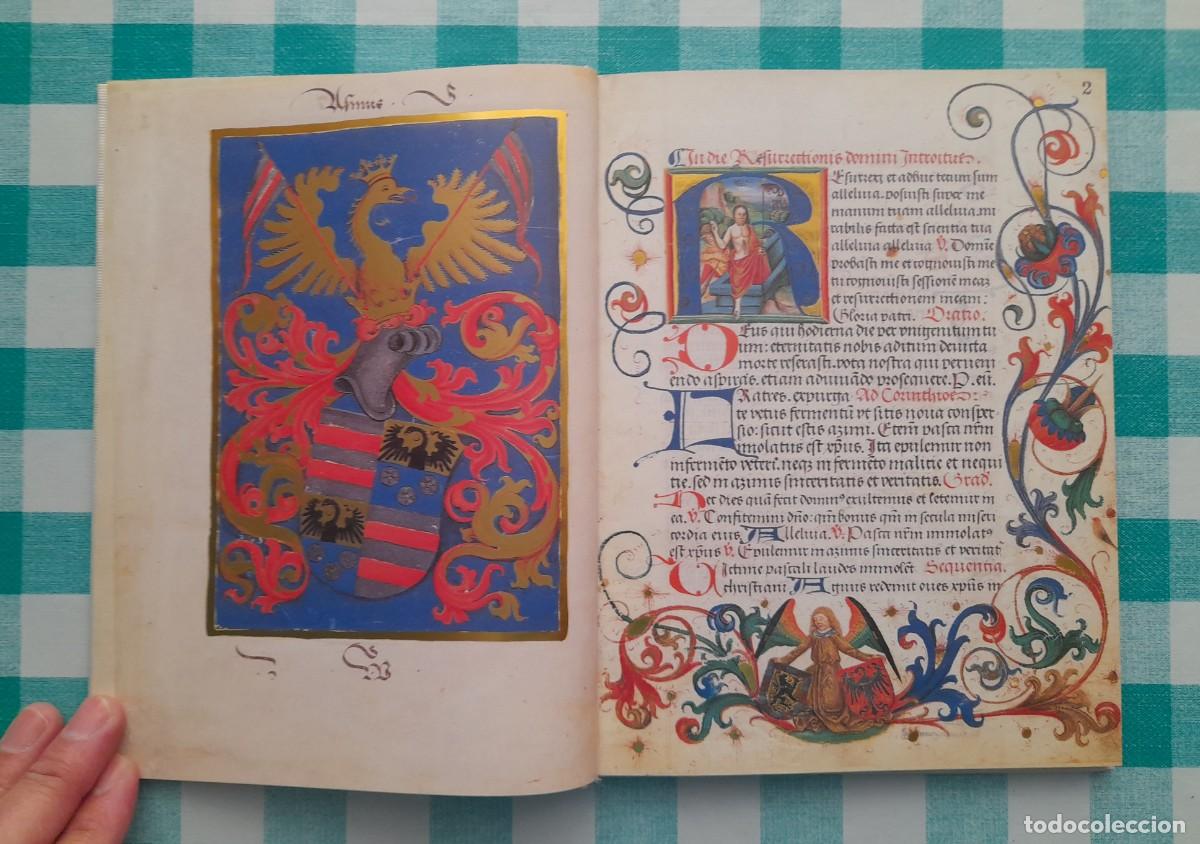 2
In die Resurrectionis domini Introitus.
Resurexi et adhuc tecum sum
alleluia. posuisti super me
manum tuam alleluia. mi
rabilis facta est scientia tua
alleluia alleluia V. Domine
probasti me et cognouisti me
tu cognouisti sessionē meaz
et resurrectionem meam:
Gloria patri. Oratio.
Deus qui hodierna die per vnigenitum tu
um: eternitatis nobis aditum deuicta
morte reserasti. vota nostra que preueni
endo aspiras. etiam adiuuādo prosequere. P. eū.
Fratres. expurga Ad Corinthios:
te vetus fermentū vt sitis noua consper
sio: sicut estis azimi. Etem pasca nr̄m
immolatus est xp̄us. Ita epulemur non
in fermēto veteri. neqz in fermēto malicie et nequi
tie. sed in azimis sinceritatis et veritatis. Grad.
Hec dies quā fecit dominꝰ exultemus et letemur in
ea. V. Confitemini dn̄o: qm̄ bonus qm̄ in secula miseri
cordia eius Alleluia. V. Pasca nr̄m immolatꝰ
est xp̄us V. Epulemur in azimis sinceritatis et veritatꝭ
Victime pascali laudes immolent Sequentia.
christiani Agnus redemit oues xp̄us in
todocoleccion